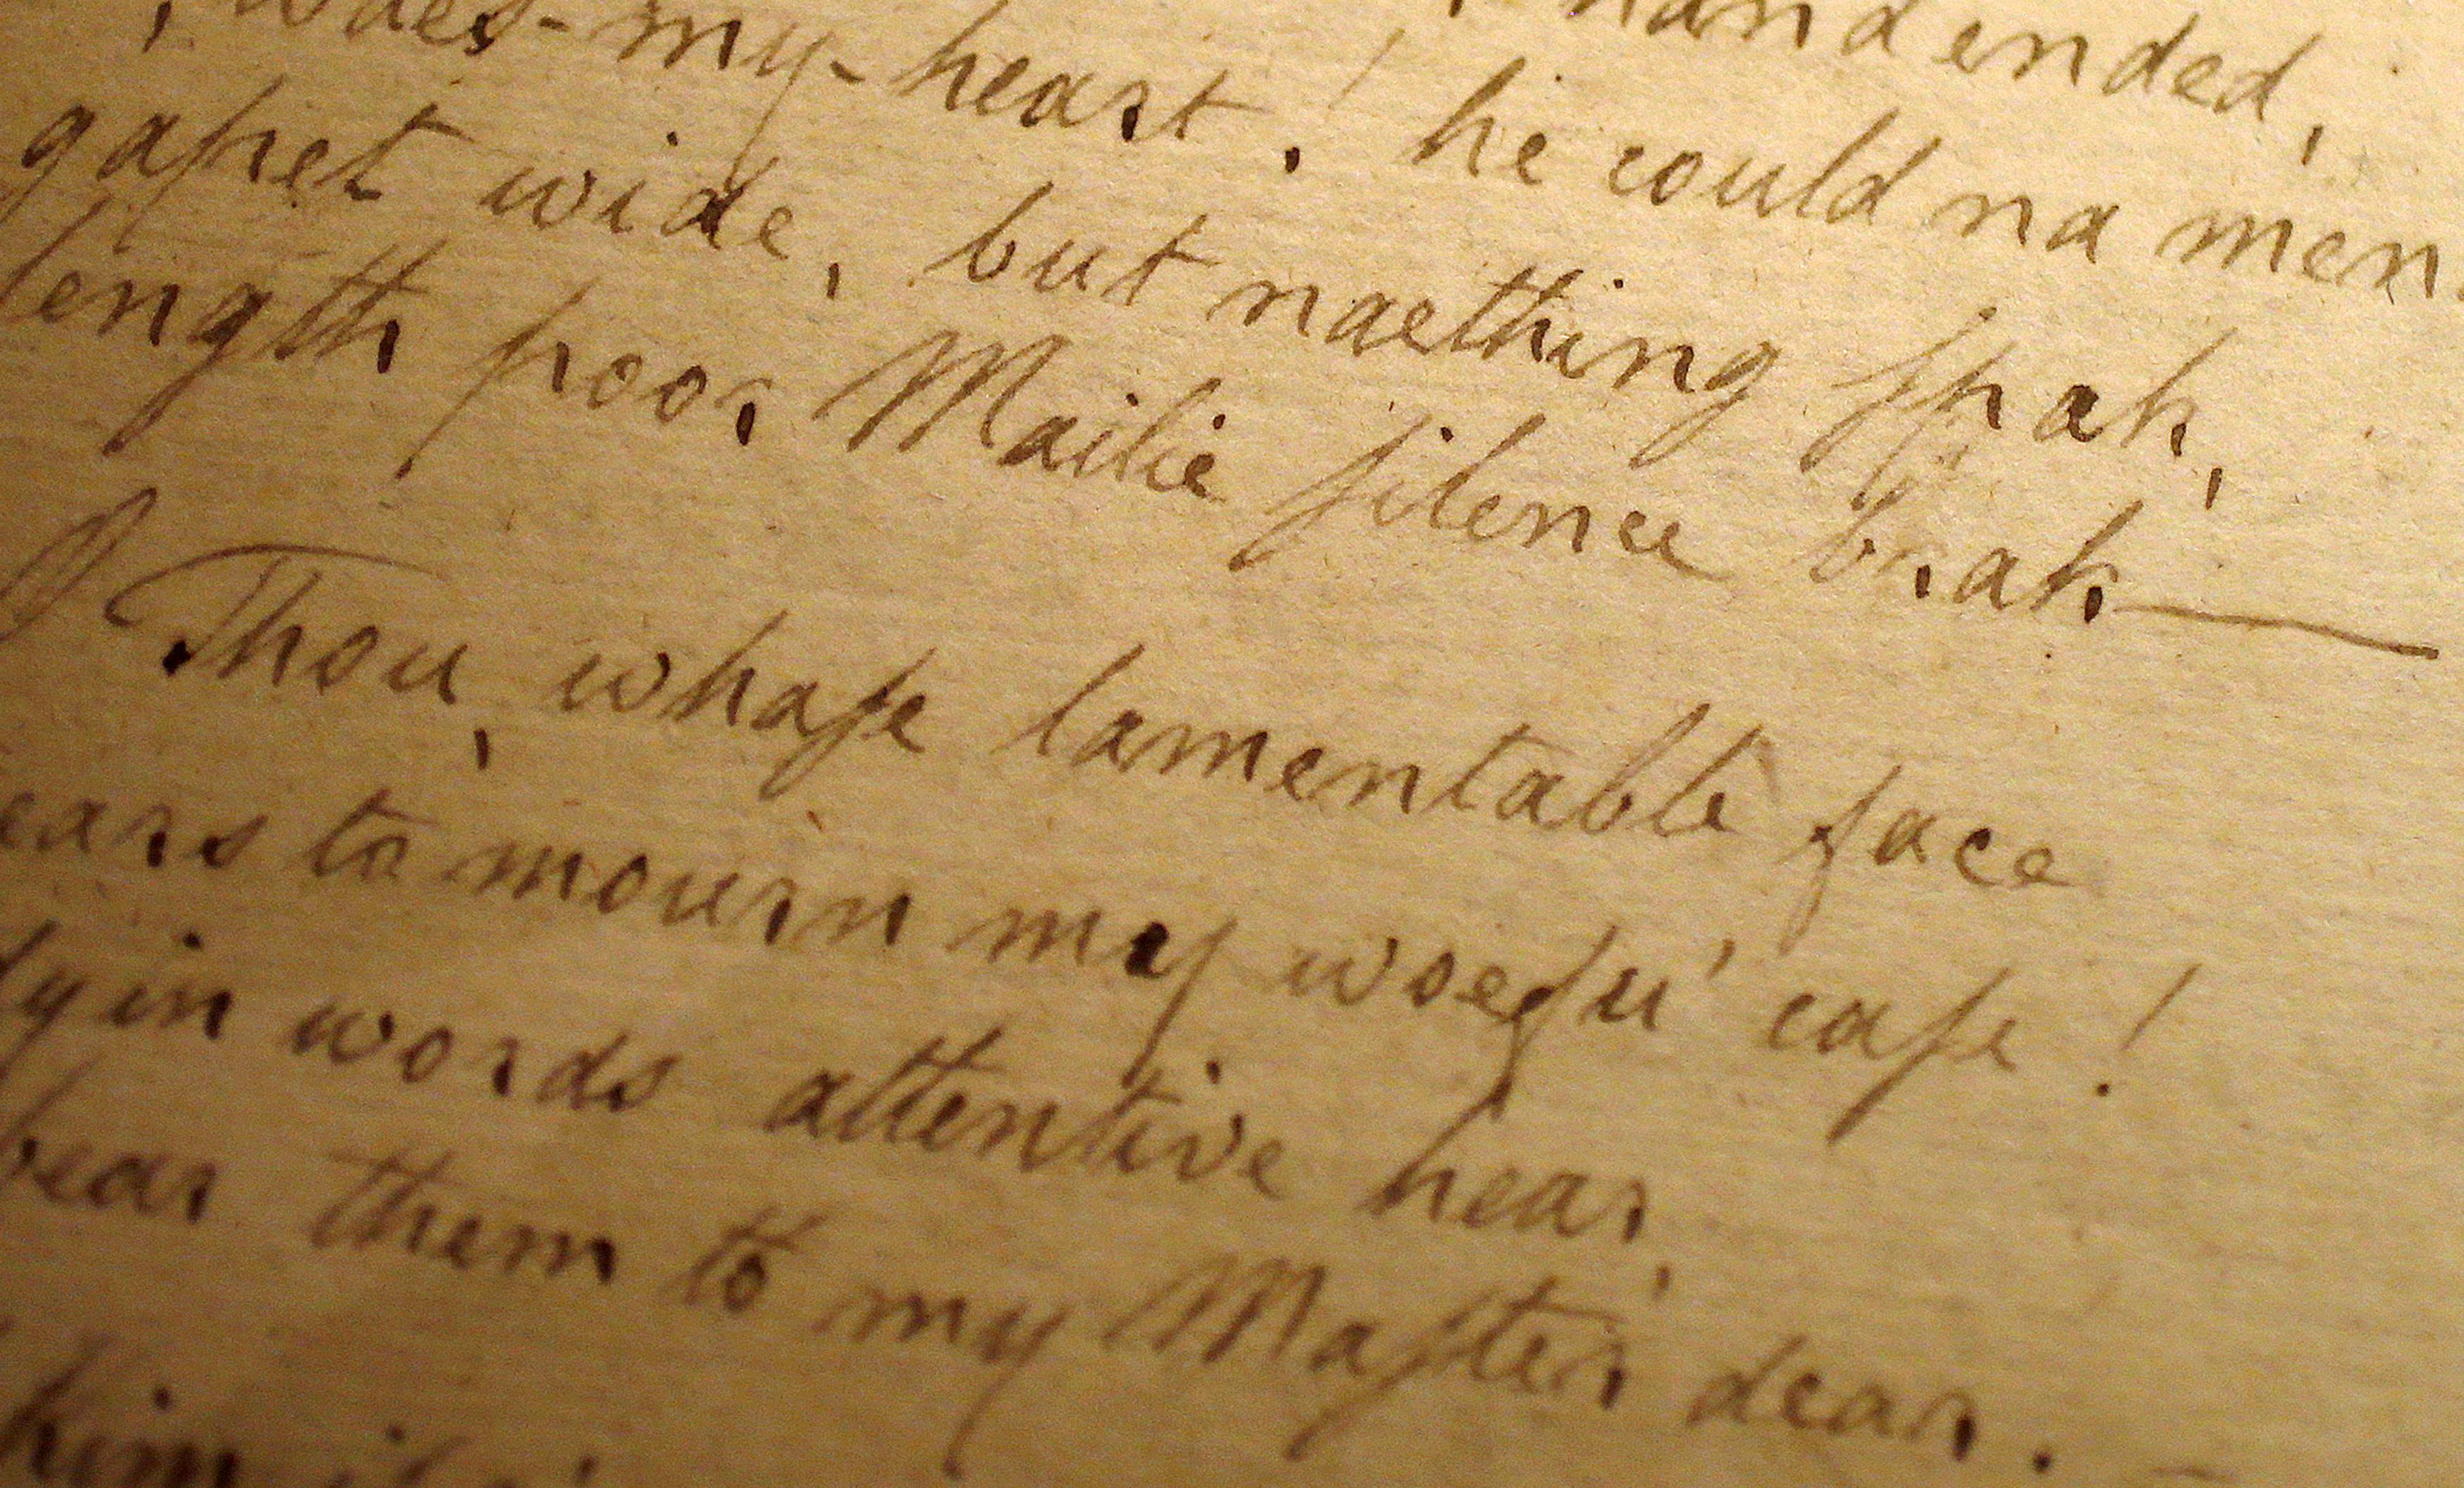 handended,
, waes-my-heart! he could na men
gapet wide, but naething ſpak,
length poor Mailie ſilence brak—
O Thou, whaſe lamentable face
ears to mourn my woefu' caſe!
dyin words attentive hear,
bear them to my Maſter dear.
him